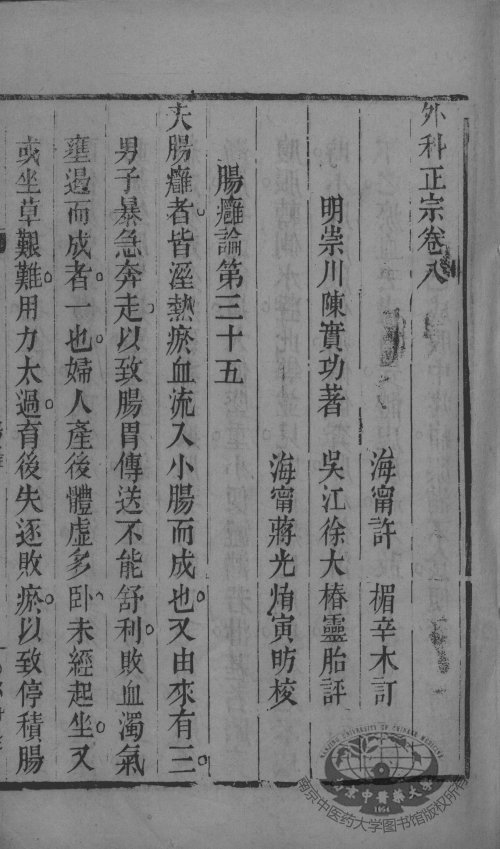 外科正宗卷八
海甯許　楣辛木訂
明崇川陳實功著　吳江徐大椿靈胎評
海甯蔣光焴寅昉校
腸癰論第三十五
夫腸癰者皆溼熱瘀血流入小腸而成也又由來有三
男子暴急奔走以致腸胃傳送不能舒利敗血濁氣
壅遏而成者一也婦人產後體虛多卧未經起坐又
或坐草艱難用力太過育後失逐敗瘀以致停積腸
NANJING UNIVERSITY OF CHINESE MEDICINE
南京中醫藥大學
1954
南京中医药大学图书馆版权所有